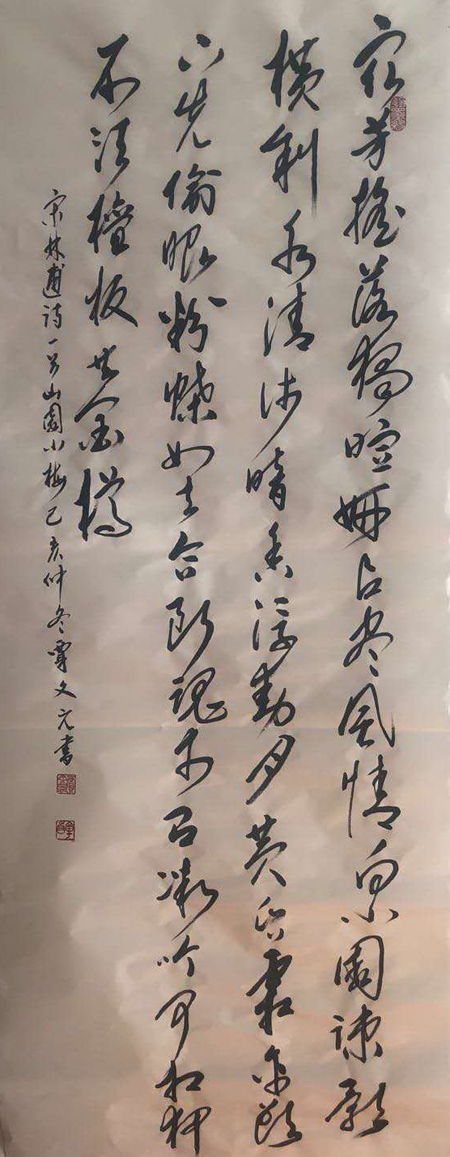 众芳摇落独暄妍占尽风情向小園疎影
横斜水清浅暗香浮動月黄昏霜禽欲
下先偷眼粉蝶如知合断魂幸有微吟可相狎
不须檀板共金樽
宋林逋诗一首山園小梅己亥仲冬覃文元書